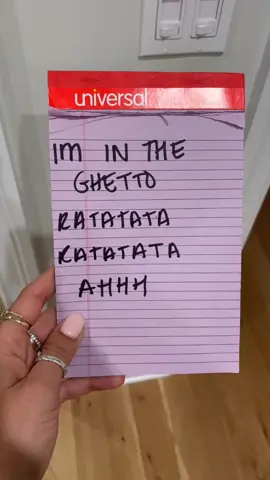 universal
IM IN THE
GHETTO
RATATATA
RATATATA
AHHH